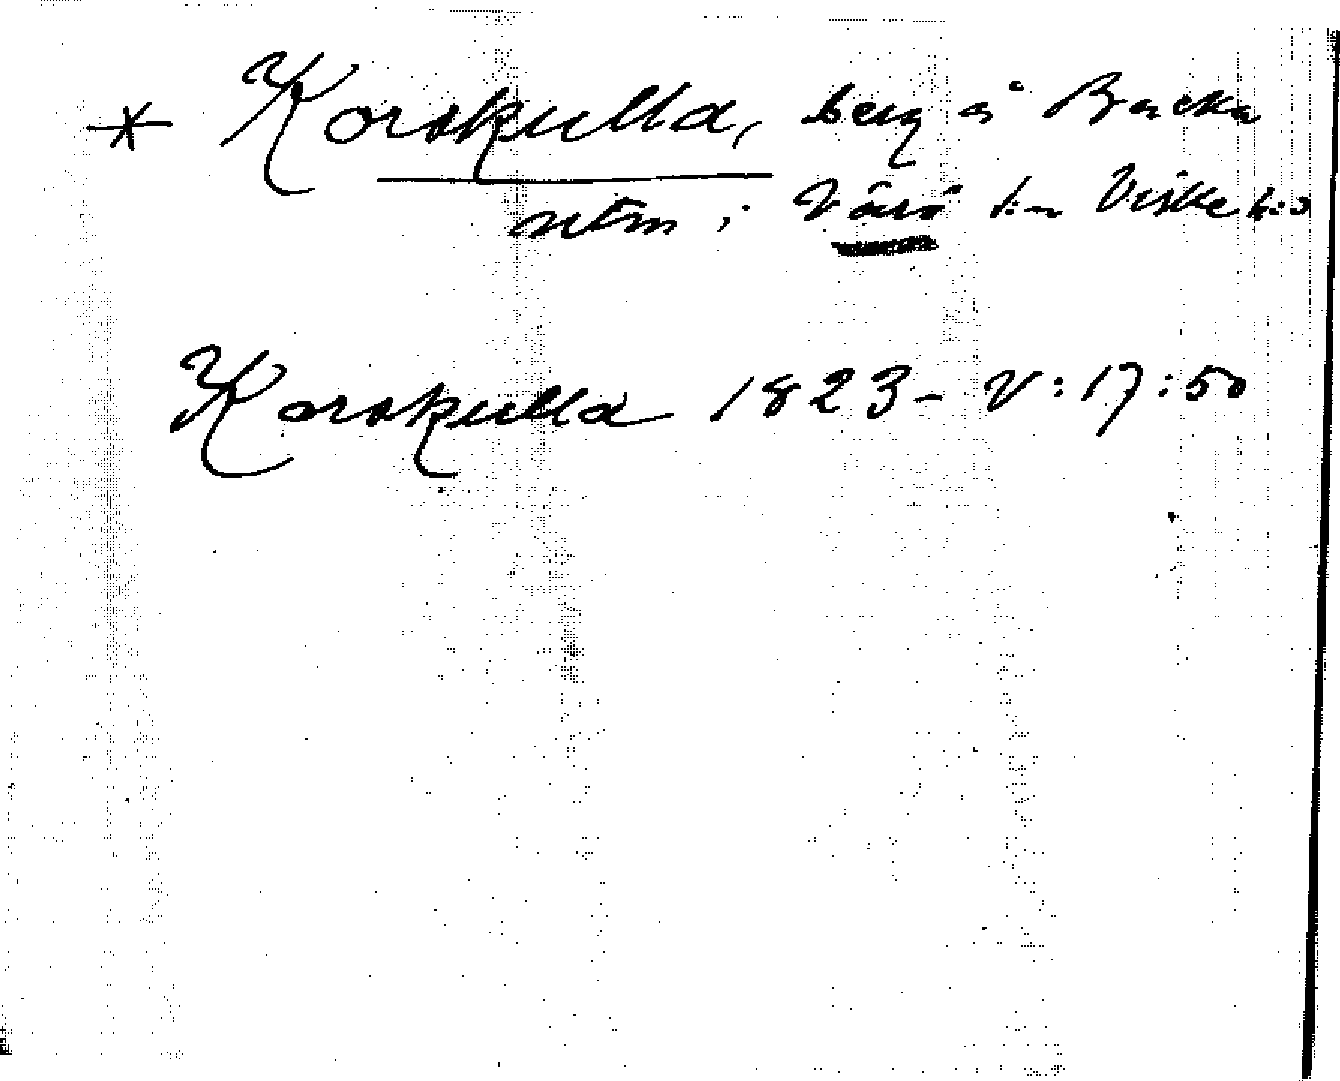 * Korskulla, berg å Backa
utm i Värö sn Viske hd
Korskulla 1823 - V:17:50